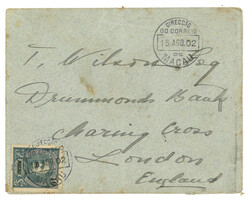 DIRECÇÃO
DO CORREIO
15 AGO. 02
DE
MACAU
T. Wilson Esq
Drummonds Bank
Charing Cross
London
England